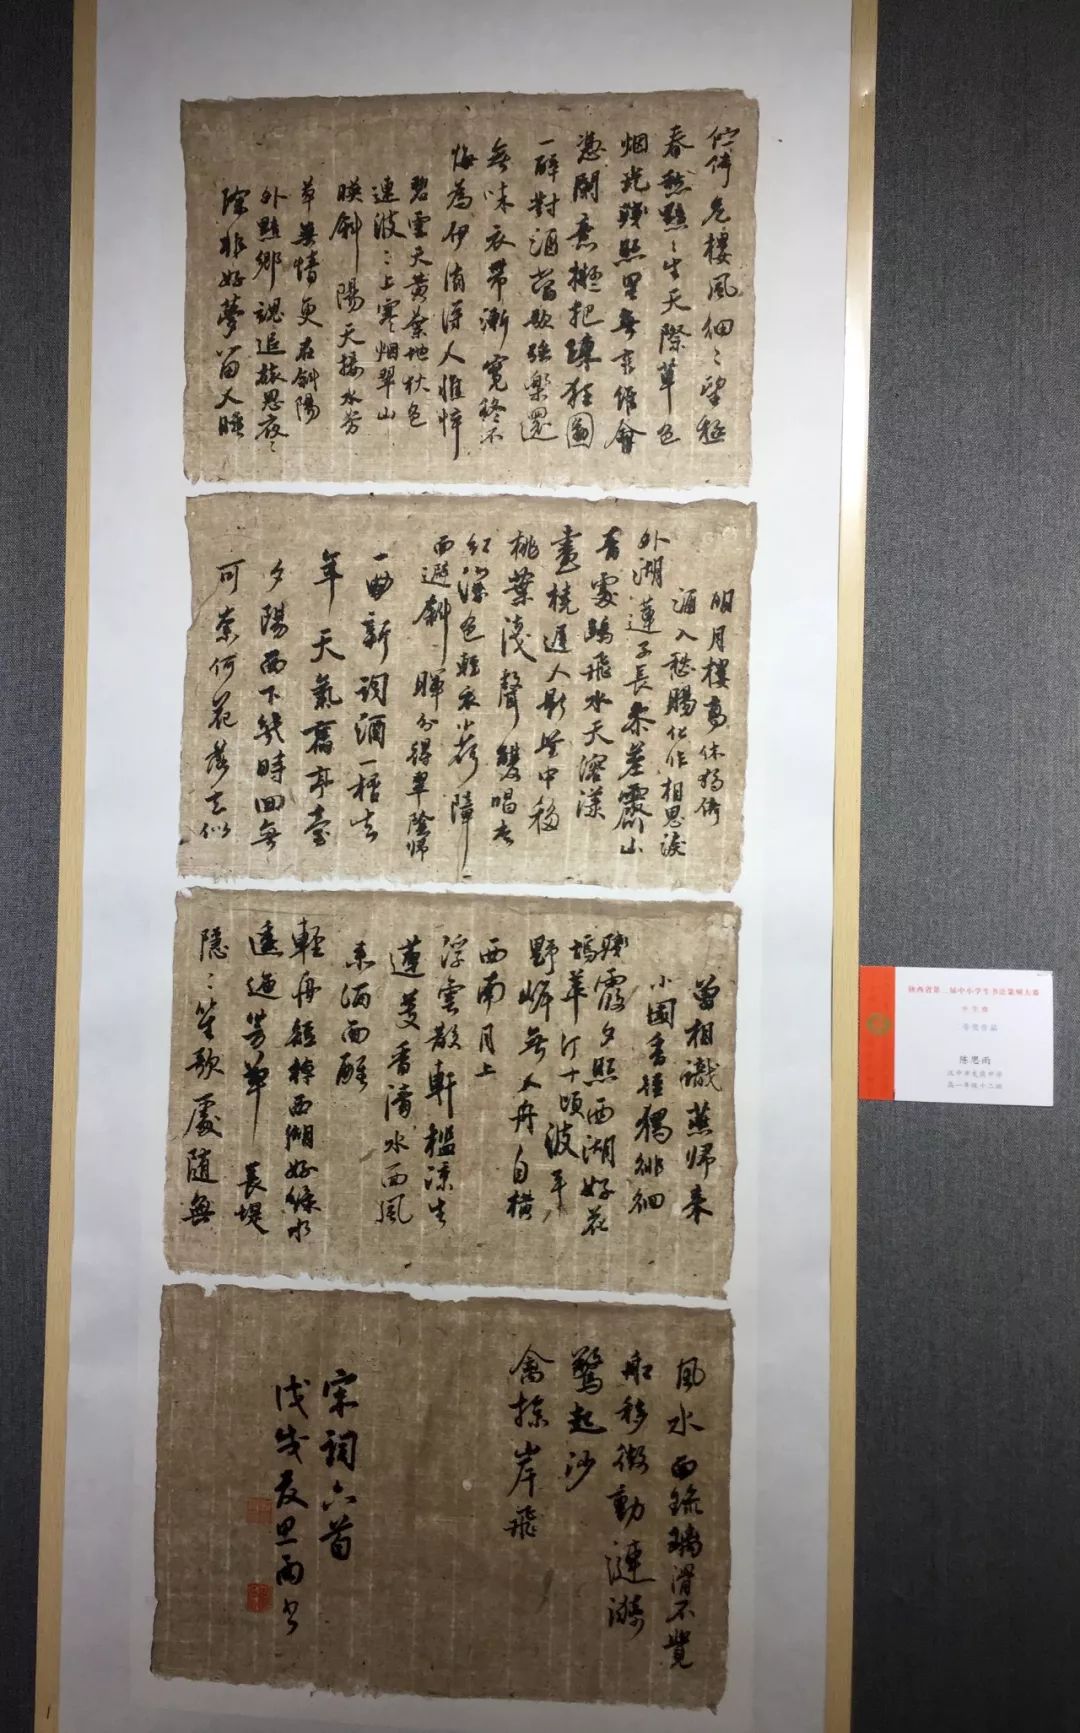 佇倚危樓風細〻望極
春愁黯〻生天際草色
烟光殘照里無言誰會
憑闌意擬把疎狂圖
一醉對酒當歌強樂還
無味衣帶漸寬終不
悔為伊消得人憔悴
碧雲天黃葉地秋色
連波〻上寒烟翠山
暎斜陽天接水芳
草無情更在斜陽
外黯鄉魂追旅思夜〻
除非好夢留人睡
明月樓高休獨倚
酒入愁腸化作相思淚
外湖蓮子長參差霽山
青處鷗飛水天溶漾
畫橈遲人影鑒中移
桃葉淺聲雙唱杏
紅深色輕衣小荷障
面避斜暉分得翠陰歸
一曲新詞酒一桮去
年天氣舊亭臺
夕陽西下幾時回無
可奈何花落去似
曾相識燕歸來
小園香徑獨徘徊
殘霞夕照西湖好花
塢苹汀十頃波平
野岸無人舟自橫
西南月上
浮雲散軒檻涼生
蓮芰香清水面風
來酒面醒
輕舟短棹西湖好綠水
逶迤芳草長堤
隱〻笙歌處隨無
風水面琉璃滑不覺
船移微動漣漪
驚起沙
禽掠岸飛
宋詞六首
戊戌夏思雨書
陕西省第二届中小学生书法篆刻大赛
等奖作品
陈思雨
汉中市龙岗中学
高一年级十二班